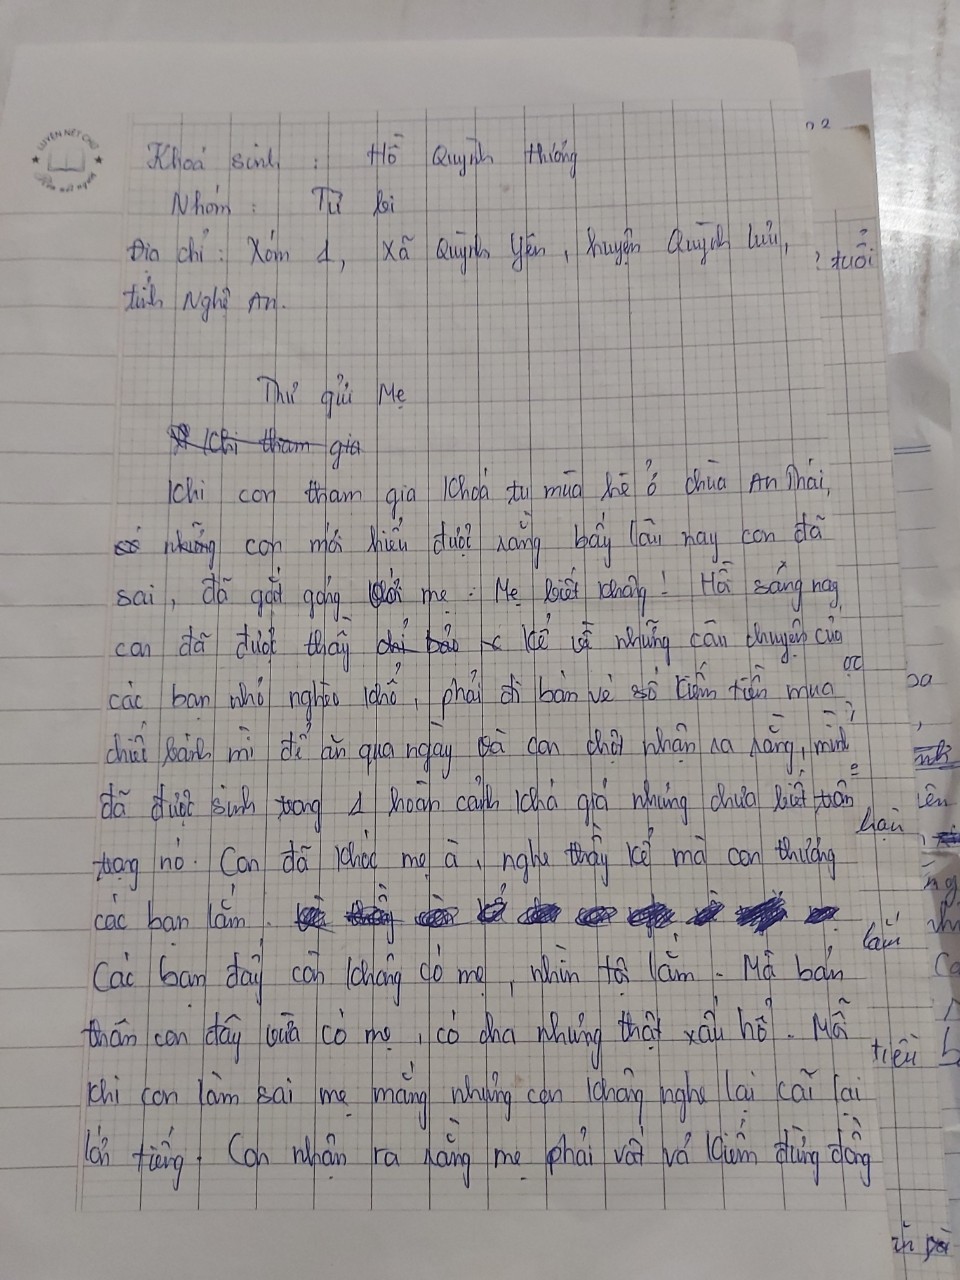 LUYỆN NÉT CHỮ
Khoá sinh : Hồ Quỳnh Hương
Nhóm : Từ bi
Địa chỉ : Xóm 1, xã Quỳnh Yên, huyện Quỳnh Lưu,
tỉnh Nghệ An.
Thư gửi Mẹ
Khi tham gia
Khi con tham gia khoá tu mùa hè ở chùa An Thái,
có những con mới hiểu được rằng bấy lâu nay con đã
sai, đã gắt gỏng với mẹ. Mẹ biết không! Hồi sáng nay
con đã được thầy chỉ bảo kể về những câu chuyện của
các bạn nhỏ nghèo khổ, phải đi bán vé số kiếm tiền mua
chiếc bánh mì để ăn qua ngày và con chợt nhận ra rằng, mình
đã được sinh trong 1 hoàn cảnh khá giả nhưng chưa biết trân
trọng nó. Con đã khóc mẹ à, nghe thầy kể mà con thương
các bạn lắm.
Các bạn đấy còn không có mẹ, nhìn tội lắm. Mà bản
thân con đây vừa có mẹ, có cha nhưng thật xấu hổ. Mỗi
khi con làm sai mẹ mắng nhưng con không nghe lại cãi lại
lớn tiếng. Con nhận ra rằng mẹ phải vất vả kiếm từng đồng
tuổi
hạn
lắm
tiêu